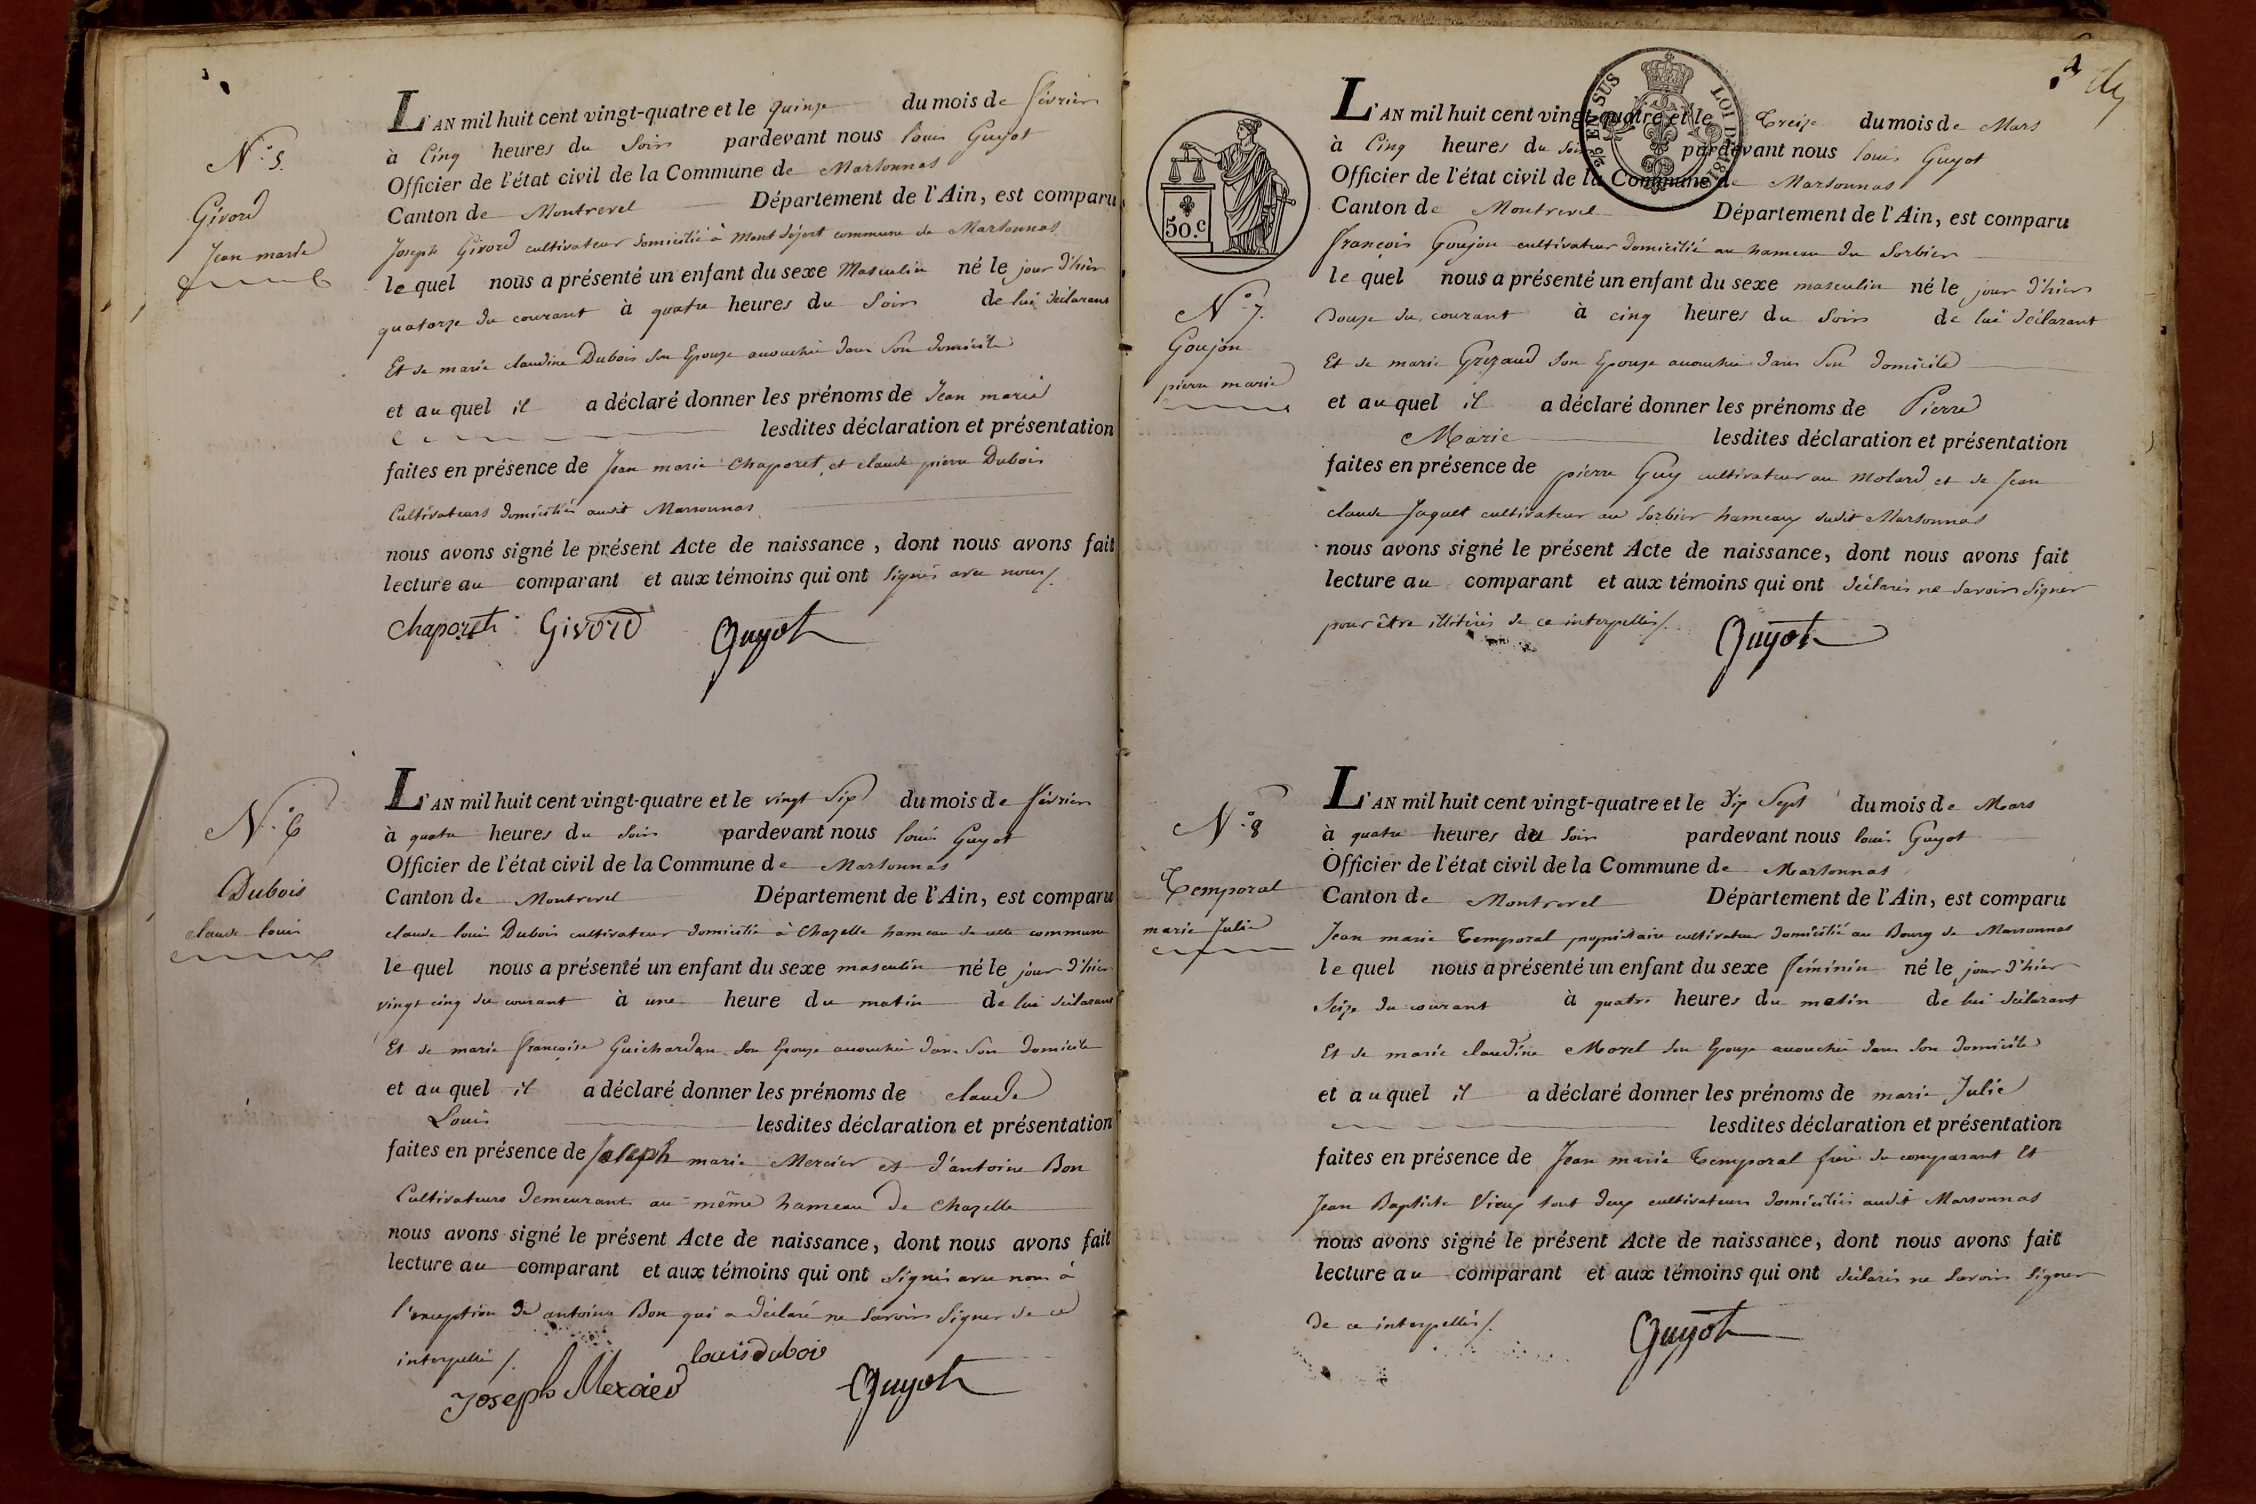 N.º 5.
Givord
Jean marie
L'AN mil huit cent vingt-quatre et le quinze du mois de février
à Cinq heures du Soir pardevant nous louis Guyot
Officier de l'état civil de la Commune de Marsonnas
Canton de Montrevel Département de l'Ain, est comparu
Joseph Givord cultivateur domicilié à commune de Marsonnas
le quel nous a présenté un enfant du sexe Masculin né le jour d'hier
quatorze du courant à quatre heures du Soir de lui déclarant
Et de marie claudine Dubois Son Epouze accouchée dans Son domicile
et au quel il a déclaré donner les prénoms de Jean marie
lesdites déclaration et présentation
faites en présence de Jean marie Chaporet et claude pierre Dubois
Cultivateurs domiciliés audit Marsonnas
nous avons signé le présent Acte de naissance, dont nous avons fait
lecture au comparant et aux témoins qui ont Signés avec nous/.
Chaporet Givord Guyot
N.º 6
Dubois
claude louis
L'AN mil huit cent vingt-quatre et le vingt Six du mois de février
à quatre heures du Soir pardevant nous louis Guyot
Officier de l'état civil de la Commune de Marsonnas
Canton de Montrevel Département de l'Ain, est comparu
claude louis Dubois cultivateur domicilié à Chazelle hameau de cette commune
le quel nous a présenté un enfant du sexe masculin né le jour d'hier
vingt cinq du courant à une heure du matin de lui déclarant
Et de marie françoise Guichardan Son Epouze accouchée dans Son domicile
et au quel il a déclaré donner les prénoms de claude
Louis lesdites déclaration et présentation
faites en présence de Joseph marie Mercier et d'antoine Bon
Cultivateurs demeurant au même hameau de Chazelle
nous avons signé le présent Acte de naissance, dont nous avons fait
lecture au comparant et aux témoins qui ont Signés avec nous à
l'exception de antoine Bon qui a déclaré ne Savoir Signer de ce
interpellé/.
louis dubois
Joseph Mercier Guyot
LOI DE 181
EN SUS
50.c
N.º 7.
Goujon
pierre marie
L'AN mil huit cent vingt-quatre et le Treize du mois de Mars
à Cinq heures du Soir pardevant nous louis Guyot
Officier de l'état civil de la Commune de Marsonnas
Canton de Montrevel Département de l'Ain, est comparu
françois Goujon cultivateur domicilié au hameau du Sorbier
le quel nous a présenté un enfant du sexe masculin né le jour d'hier
Douze du courant à cinq heures du Soir de lui déclarant
Et de marie Grezaud Son Epouze accouchée dans Son domicile
et au quel il a déclaré donner les prénoms de Pierre
Marie lesdites déclaration et présentation
faites en présence de pierre Guy cultivateur au Molard et de Jean
claude Jaquet cultivateur au Sorbier hameaux dudit Marsonnas
nous avons signé le présent Acte de naissance, dont nous avons fait
lecture au comparant et aux témoins qui ont déclarés ne Savoir Signer
pour être illitérés de ce interpellés/.
Guyot
N.º 8
Temporal
marie Julie
L'AN mil huit cent vingt-quatre et le dix Sept du mois de Mars
à quatre heures du Soir pardevant nous louis Guyot
Officier de l'état civil de la Commune de Marsonnas
Canton de Montrevel Département de l'Ain, est comparu
Jean marie Temporal propriétaire cultivateur domicilié au Bourg de Marsonnas
le quel nous a présenté un enfant du sexe féminin né le jour d'hier
Seize du courant à quatre heures du matin de lui déclarant
Et de marie claudine Morel Son Epouze accouchée dans Son domicile
et au quel il a déclaré donner les prénoms de marie Julie
lesdites déclaration et présentation
faites en présence de Jean marie Temporal frère du comparant Et
Jean Baptiste Vieux tout deux cultivateurs domiciliés audit Marsonnas
nous avons signé le présent Acte de naissance, dont nous avons fait
lecture au comparant et aux témoins qui ont déclarés ne Savoir Signer
de ce interpellés/.
Guyot